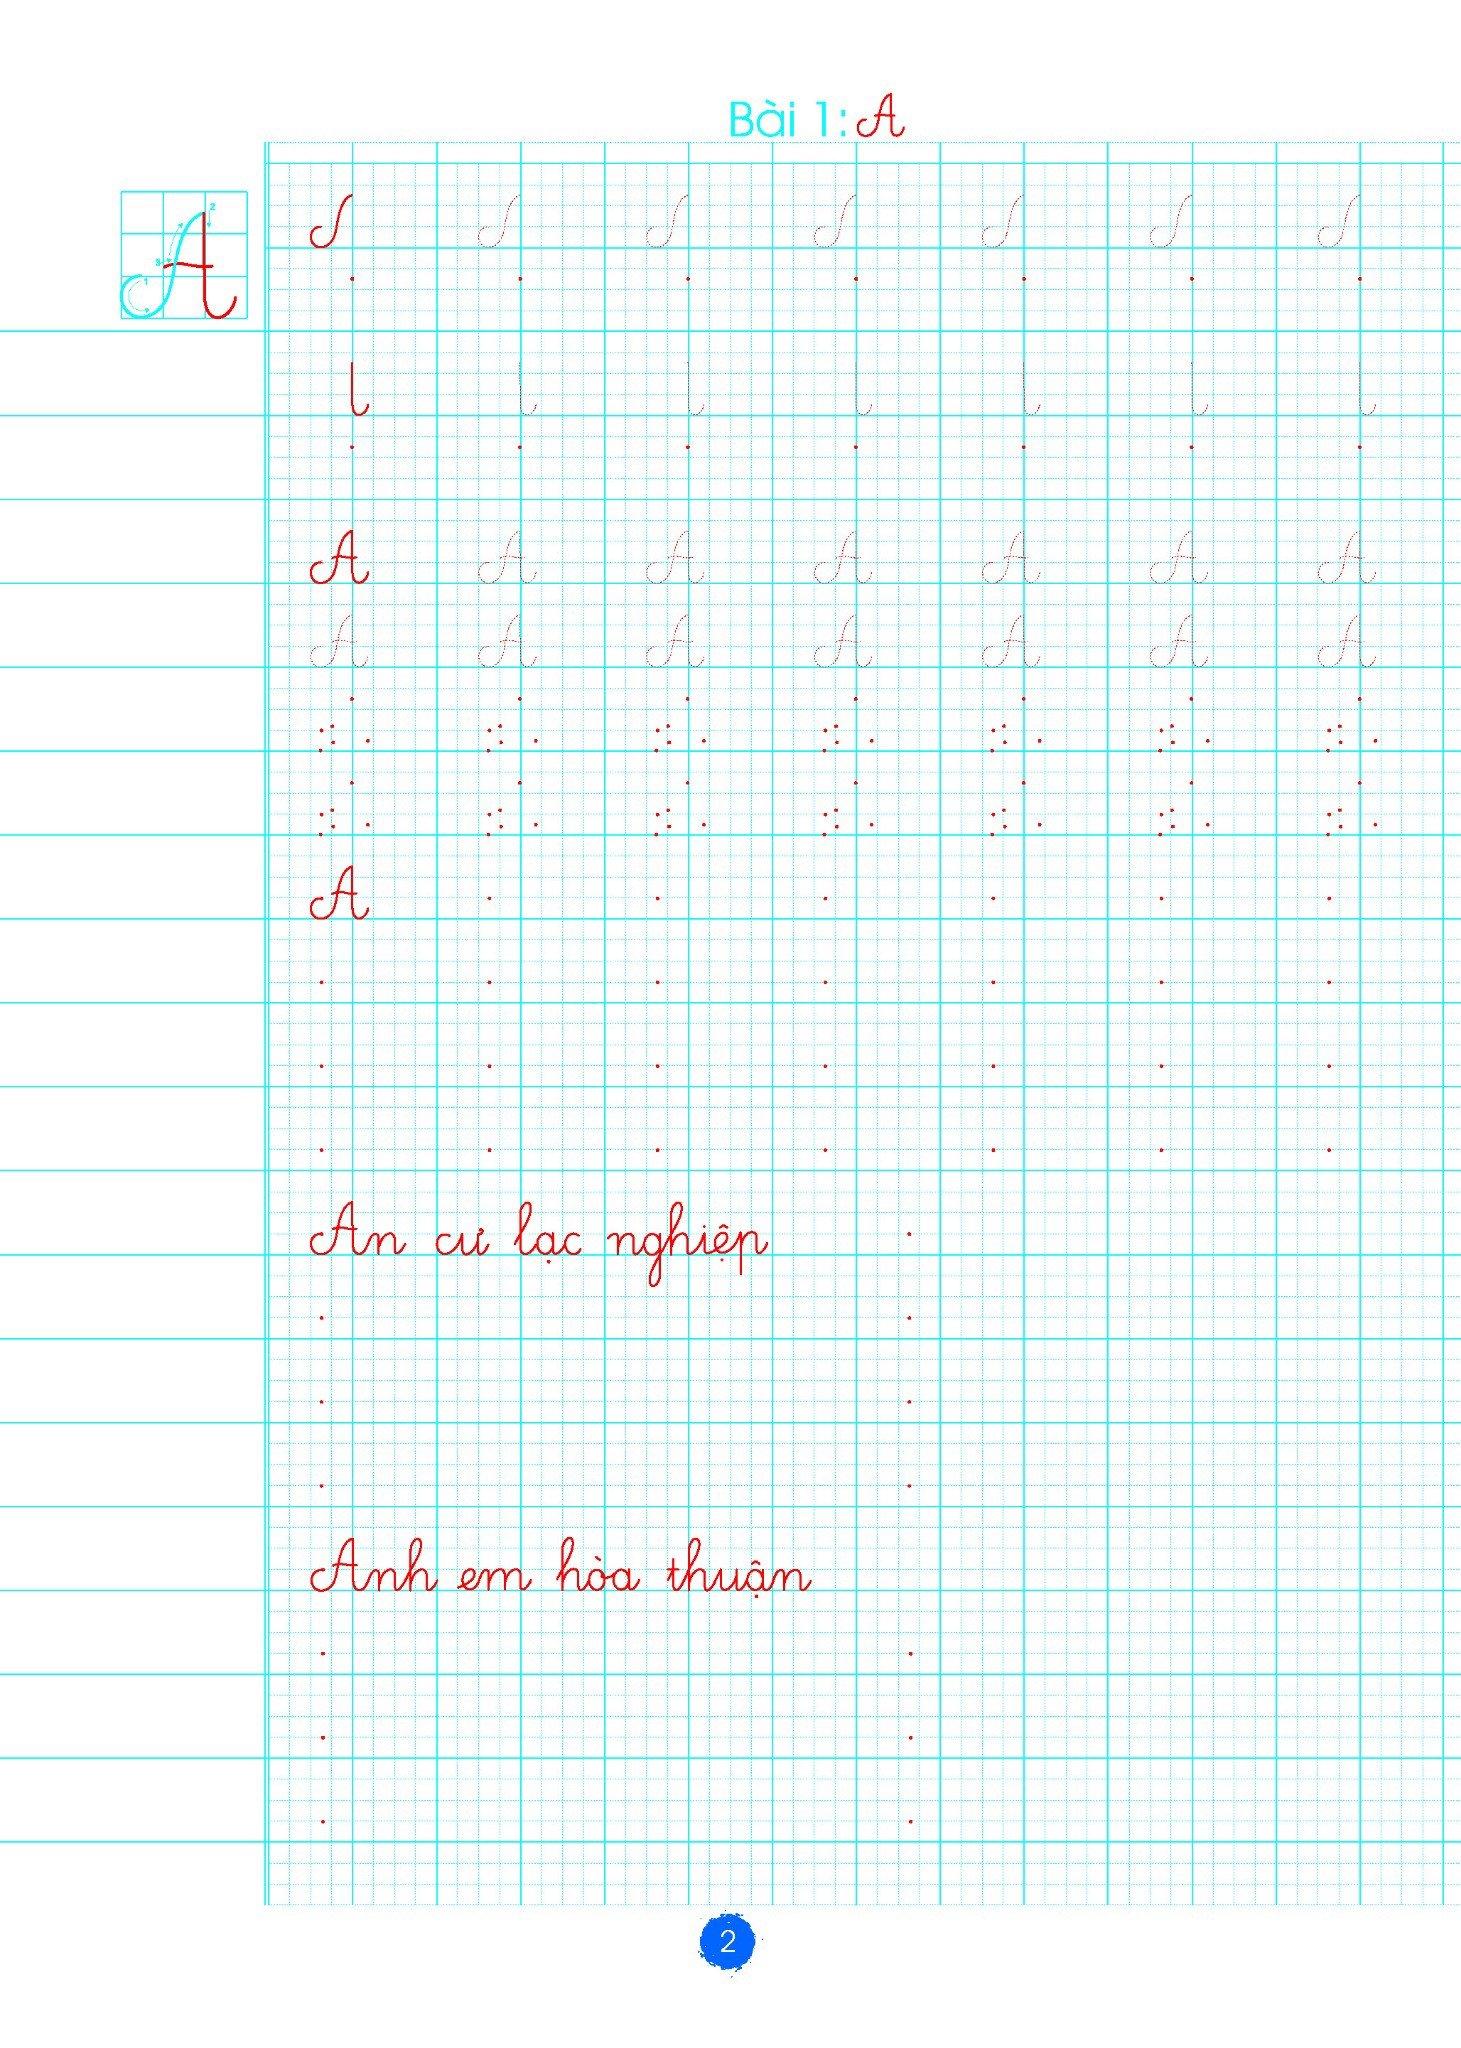 Bài 1: A
1 2 3
A
A A A A A A A
A A A A A A A
A
An cư lạc nghiệp
Anh em hòa thuận
2